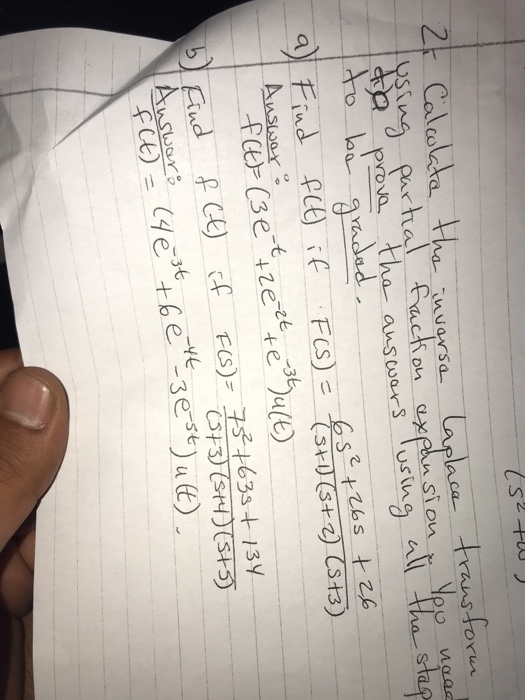 (s²+w²)
2- Calculate the inverse Laplace transform
using partial fraction expansion. You need
to prove the answers using all the step
to be graded.
a) Find f(t) if F(s) = 6s² + 26s + 26 / (s+1)(s+2)(s+3)
Answer:
f(t) = (3e^-t + 2e^-2t + e^-3t)u(t)
b) Find f(t) if F(s) = 7s² + 63s + 134 / (s+3)(s+4)(s+5)
Answer:
f(t) = (4e^-3t + 6e^-4t - 3e^-5t)u(t).